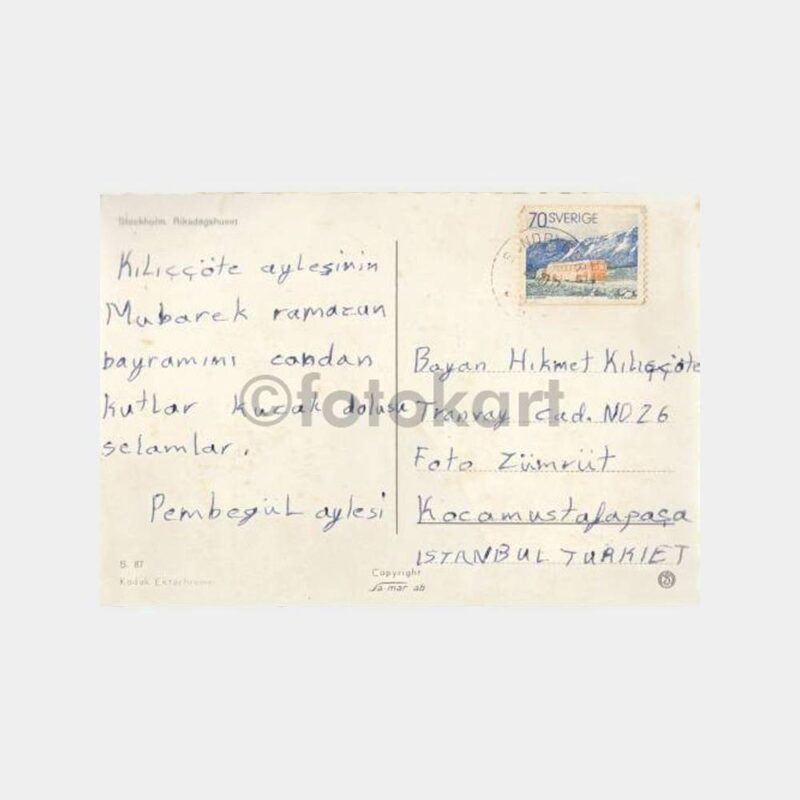 Stockholm. Riksdagshuset
70 SVERIGE
Kılıççöte aylesinin
Mubarek ramazan
bayramımı candan
kutlar kucak dolusu
selamlar.
Pembegül aylesi
Bayan Hikmet Kılıççöte
Tranvay Cad. NO 26
Foto Zümrüt
Kocamustafapaşa
ISTANBUL TURKIET
©fotokart
S. 87
Kodak Ektachrome
Copyright
sa-mar ab